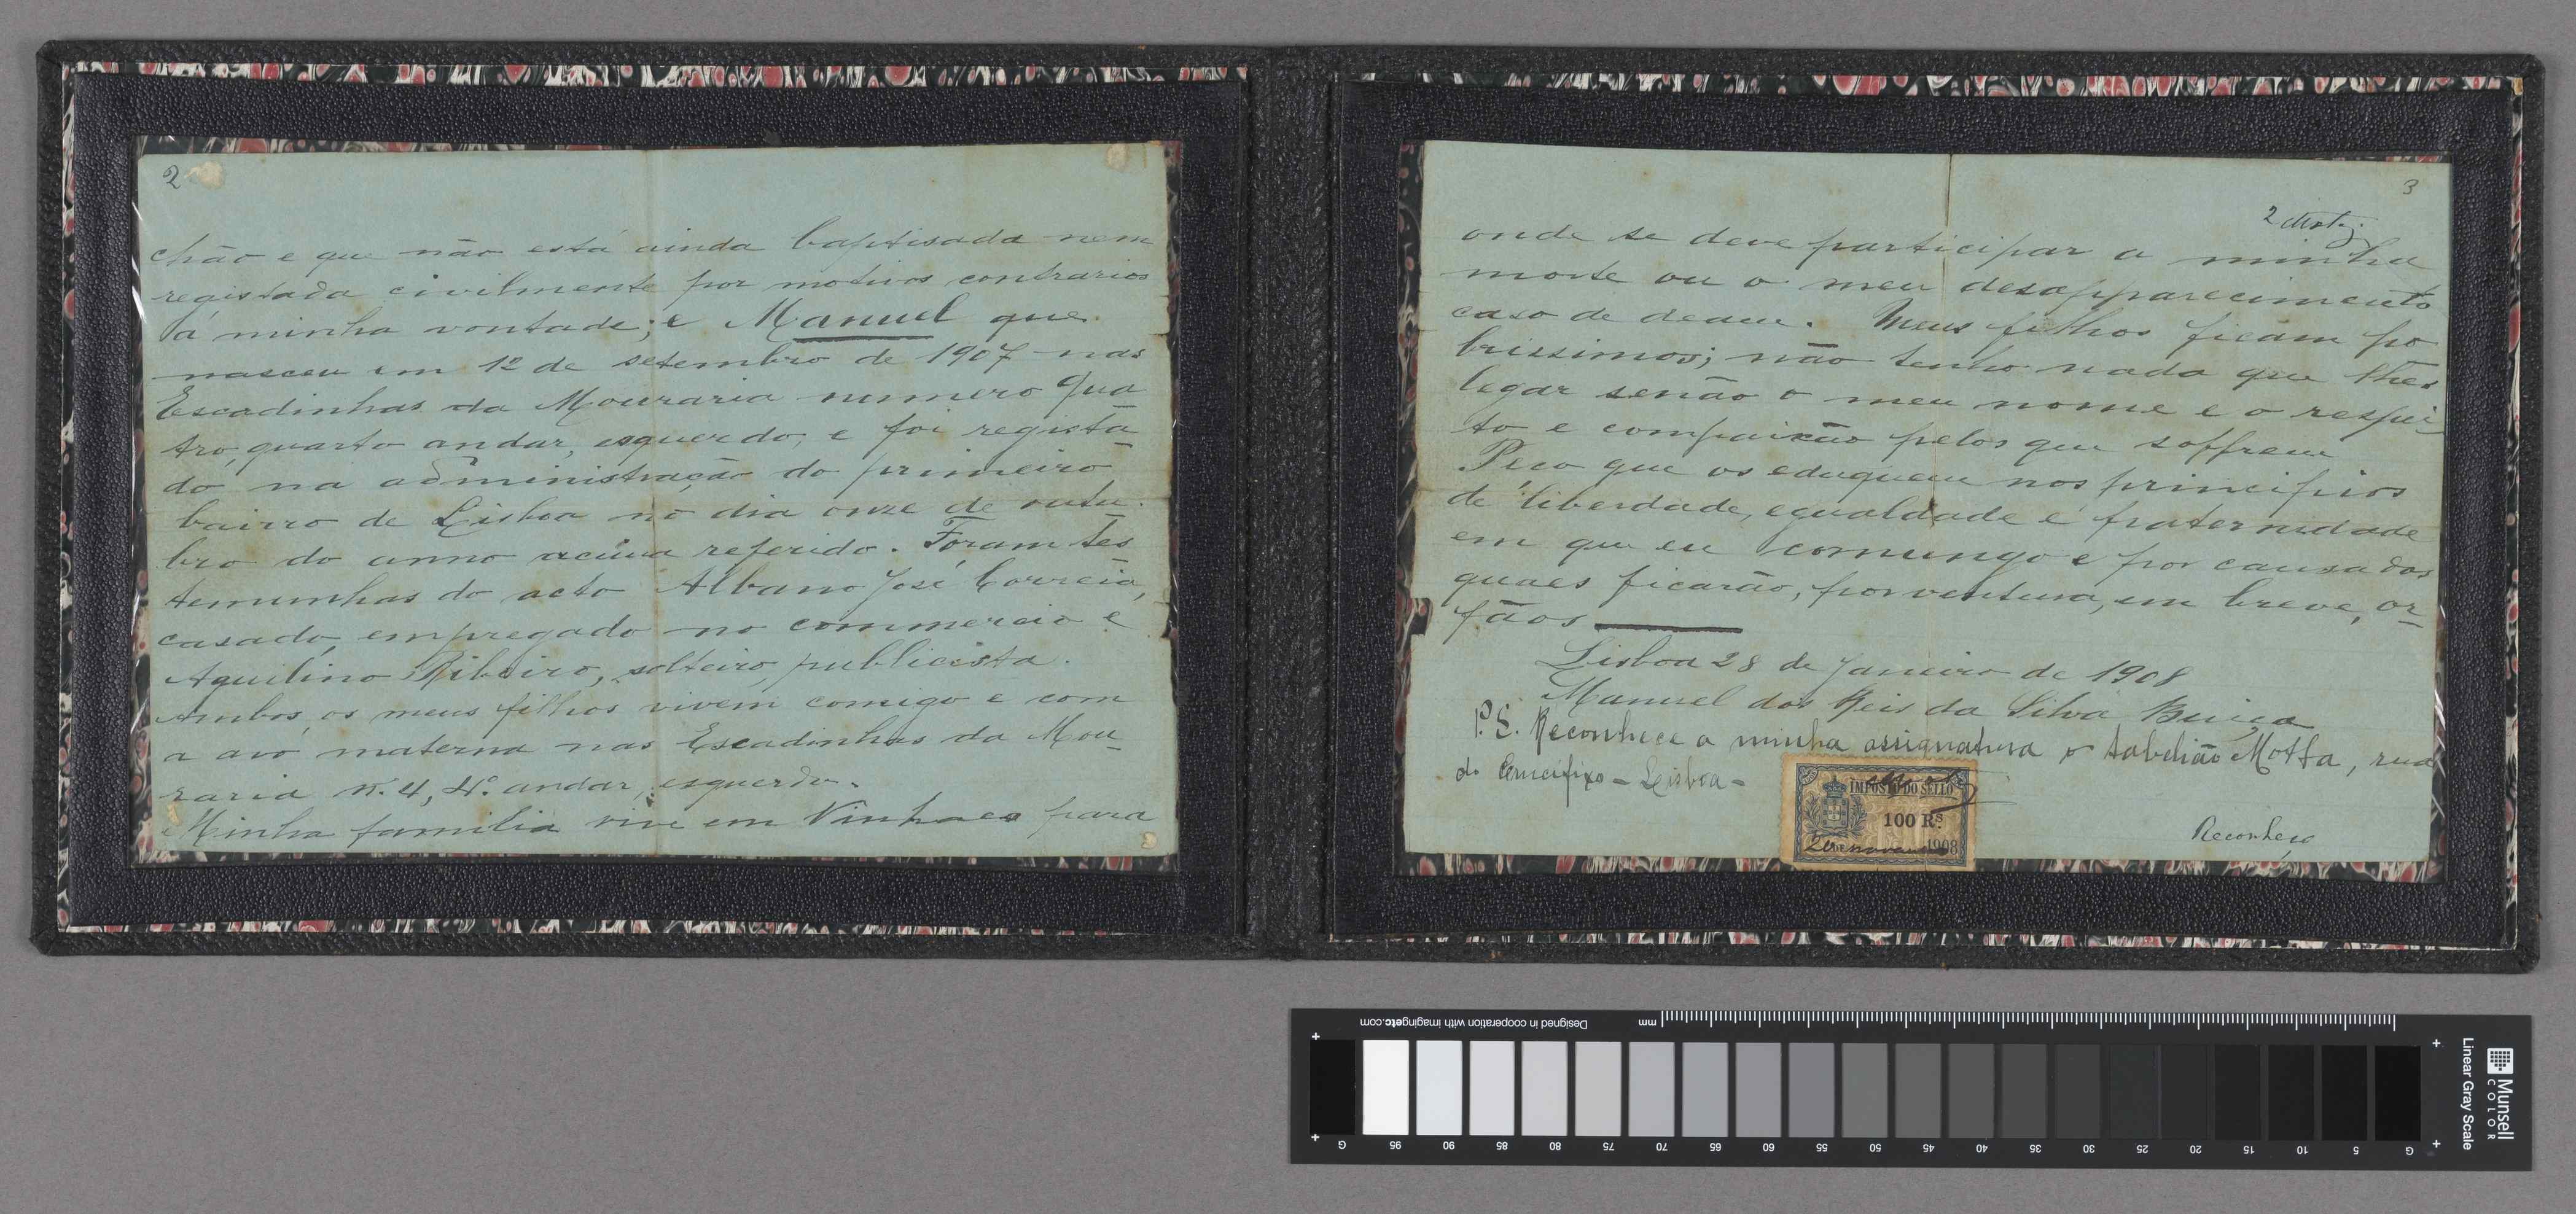 2
chão e que não está ainda baptisada nem
registada civilmente por motivos contrarios
á minha vontade; e Manuel que
nasceu em 12 de setembro de 1907 nas
Escadinhas da Mouraria numero qua
tro, quarto andar, esquerdo, e foi regista
do na administração do primeiro
bairro de Lisboa no dia onze de outu-
bro do anno acima referido. Foram tes
temunhas do acto Albano José Correia,
casado, empregado no commercio e
Aquilino Ribeiro, solteiro, publicista.
Ambos os meus filhos vivem comigo e com
a avó materna nas Escadinhas da Mou-
raria n.º 4, 4.º andar, esquerdo.
Minha familia vive em Vinhaes para
3
onde se deve participar a minha
morte ou o meu desapparecimento
caso de deam. Meus filhos ficam po
brissimos; não tenho nada que lhes
legar senão o meu nome e o respei
to e compaixão pelos que soffrem
Peço que os eduquem nos principios
de liberdade, egualdade e fraternidade
em que eu comungo e por causa dos
quaes ficarão, porventura, em breve, or-
fãos
Lisboa 28 de Janeiro de 1908
Manuel dos Reis da Silva Buiça
P.S. Reconhece a minha assignatura o tabelião Motta, rua
do Crucifixo - Lisboa -
IMPOSTO DO SELLO
100 Rs.
1908
Reconheço
Designed in cooperation with imagingetc.com
mm
G 95 90 85 80 75 70 65 60 55 50 45 40 35 30 25 20 15 10 5 G
Linear Gray Scale
Munsell
COLOR